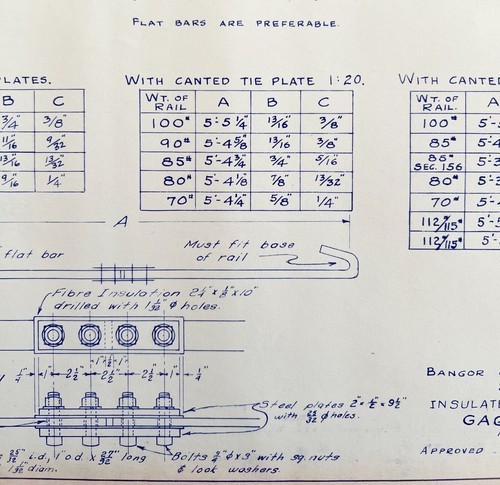 FLAT BARS ARE PREFERABLE.
PLATES.
B C
3/4" 3/8"
11/16 9/32"
13/16 13/32
9/16 1/4"
WITH CANTED TIE PLATE 1:20.
WT. OF RAIL A B C
100# 5'-5 1/4" 13/16" 3/8"
90# 5'-4 5/8" 13/16" 3/8"
85# 5'-4 3/4" 3/4" 5/16"
80# 5'-4 1/8 7/8" 13/32"
70# 5'-4 1/4" 5/8" 1/4"
WITH CANTED
WT. OF RAIL. A
100# 5'-
85# 5'-4
85# SEC. 156 5'-
80# 5'-
70# 5'-
112#/115# 5'-
112#/115# 5'-
A
flat bar
Must fit base
of rail
Fibre Insulation 2 1/4" x 1/8" x 10"
drilled with 1 1/32" ϕ holes.
1" 1/2 1"
1/4" 1" 2 1/2" 2 1/2" 2 1/2" 1" 1/4"
Steel plates 2" x 1/2" x 9 1/2"
with 25/32 ϕ holes.
25/32" i.d., 1" o.d. x 27/32" long
1 1/32" diam.
Bolts 3/4" ϕ x 3" with sq. nuts
& lock washers.
BANGOR
INSULATE
GAG
APPROVED